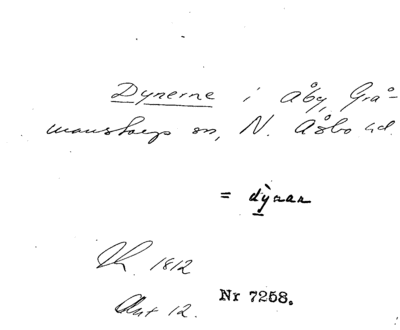 Dynerne i Åby, Grå-
manstorps sn, N. Åsbo hd.
= dynar
1812
Akt 12.
Nr 7258.